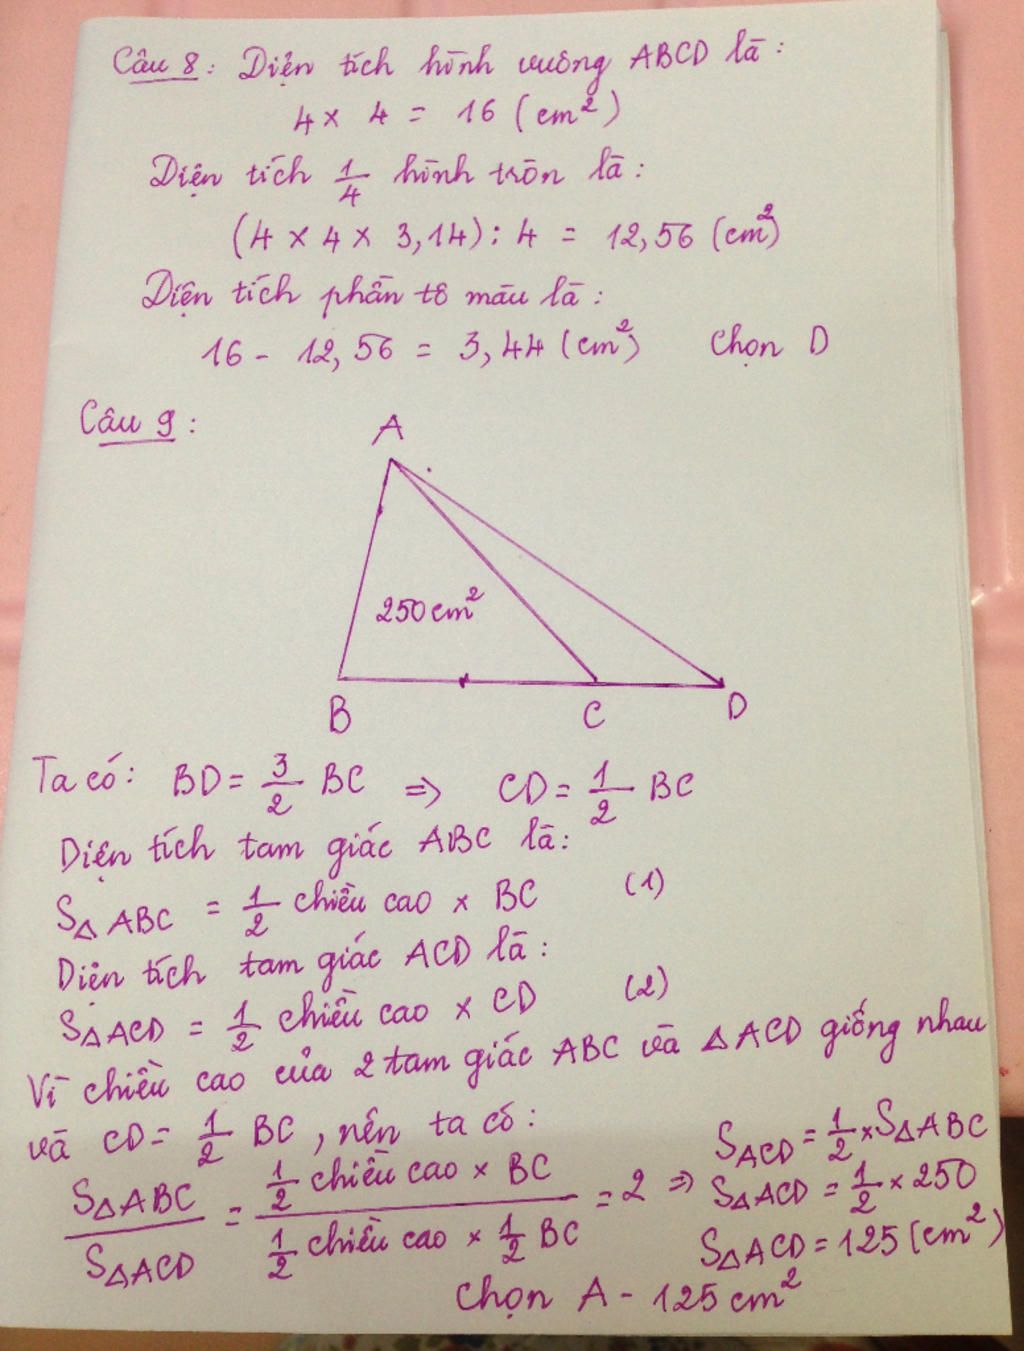 Câu 8 : Diện tích hình vuông ABCD là :
4 × 4 = 16 (cm²)
Diện tích 1/4 hình tròn là :
(4 × 4 × 3,14) : 4 = 12,56 (cm²)
Diện tích phần tô màu là :
16 - 12,56 = 3,44 (cm²) Chọn D
Câu 9 :
A
250 cm²
B C D
Ta có : BD = 3/2 BC => CD = 1/2 BC
Diện tích tam giác ABC là :
S△ABC = 1/2 chiều cao × BC (1)
Diện tích tam giác ACD là :
S△ACD = 1/2 chiều cao × CD (2)
Vì chiều cao của 2 tam giác ABC và △ACD giống nhau
và CD = 1/2 BC , nên ta có :
S△ABC / S△ACD = 1/2 chiều cao × BC / 1/2 chiều cao × 1/2 BC = 2 => SACD = 1/2 × S△ABC
S△ACD = 1/2 × 250
S△ACD = 125 (cm²)
Chọn A - 125 cm²